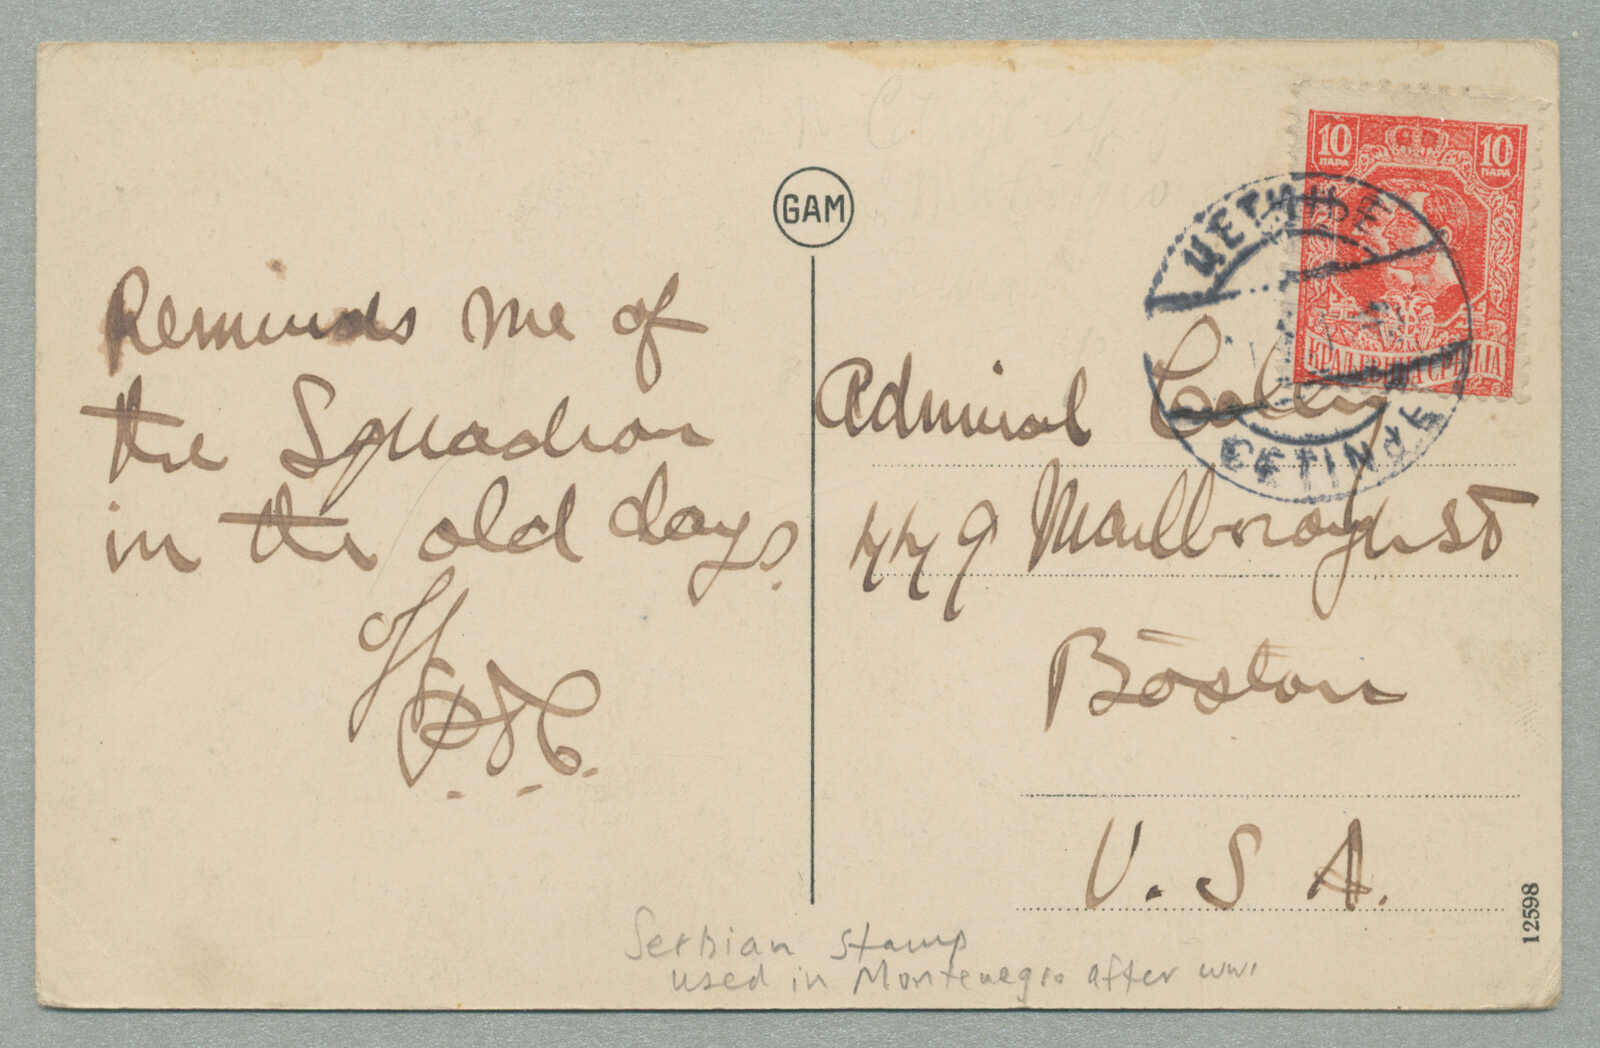 GAM
10
ПАРА
10
ПАРА
КРАЉЕВИНА СРБИЈА
ЦЕТИЊЕ
CETINJE
Reminds me of
the Squadron
in the old days.
Admiral
449 Marlborough St
Boston
U.S A.
12598
Serbian stamp
used in Montenegro after WWI